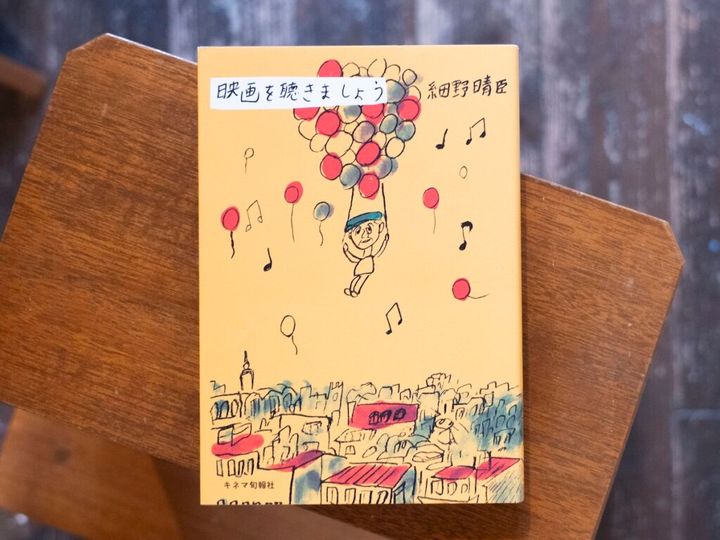 映画を聴きましょう
細野晴臣
キネマ旬報社